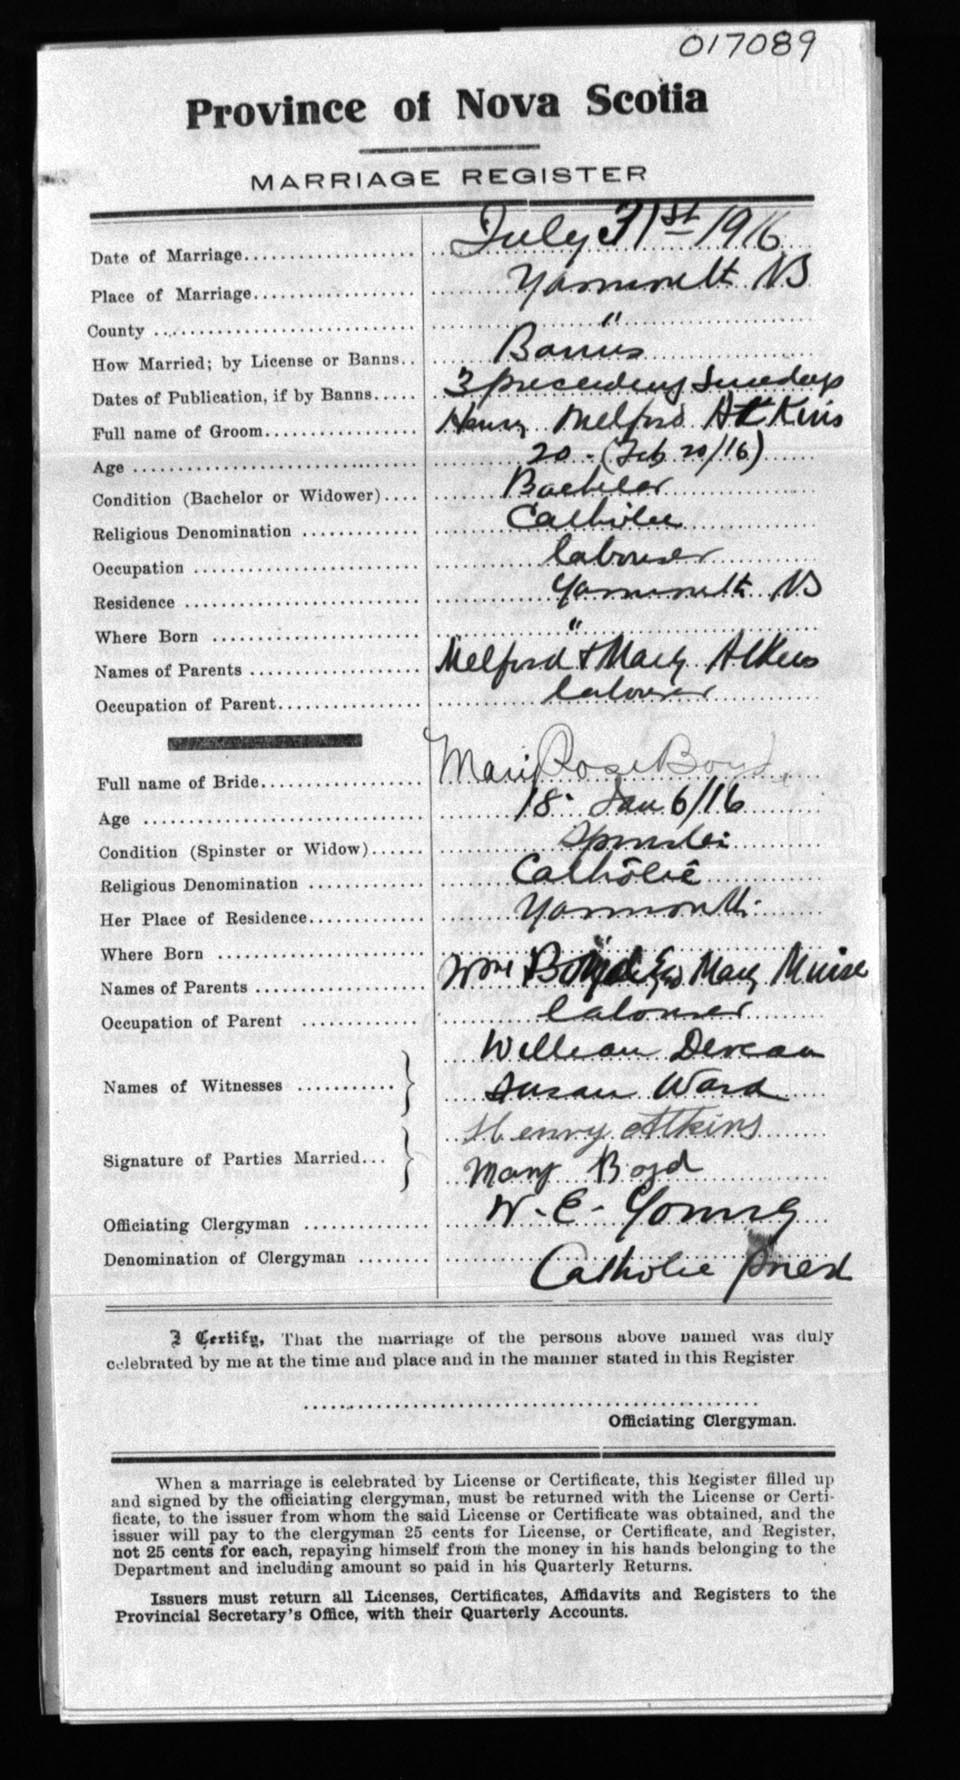 017089
Province of Nova Scotia
MARRIAGE REGISTER
Date of Marriage July 31st 1916
Place of Marriage Yarmouth NS
County "
How Married; by License or Banns Banns
Dates of Publication, if by Banns 3 preceeding Sundays
Full name of Groom Henry Melford Atkins
Age 20 - (Feb 20/16)
Condition (Bachelor or Widower) Bachelor
Religious Denomination Catholic
Occupation labourer
Residence Yarmouth NS
Where Born "
Names of Parents Melford & Mary Atkins
Occupation of Parent labourer
Full name of Bride Mary Rose Boyd
Age 18 Jan 6/16
Condition (Spinster or Widow) Spinster
Religious Denomination Catholic
Her Place of Residence Yarmouth
Where Born "
Names of Parents Wm Boyd Mary Muise
Occupation of Parent labourer
William Deveau
Names of Witnesses
Susan Ward
Henry Atkins
Signature of Parties Married
Mary Boyd
Officiating Clergyman W. E. Young
Denomination of Clergyman Catholic Priest
I Certify, That the marriage of the persons above named was duly
celebrated by me at the time and place and in the manner stated in this Register
Officiating Clergyman.
When a marriage is celebrated by License or Certificate, this Register filled up
and signed by the officiating clergyman, must be returned with the License or Certi-
ficate, to the issuer from whom the said License or Certificate was obtained, and the
issuer will pay to the clergyman 25 cents for License, or Certificate, and Register,
not 25 cents for each, repaying himself from the money in his hands belonging to the
Department and including amount so paid in his Quarterly Returns.
Issuers must return all Licenses, Certificates, Affidavits and Registers to the
Provincial Secretary's Office, with their Quarterly Accounts.